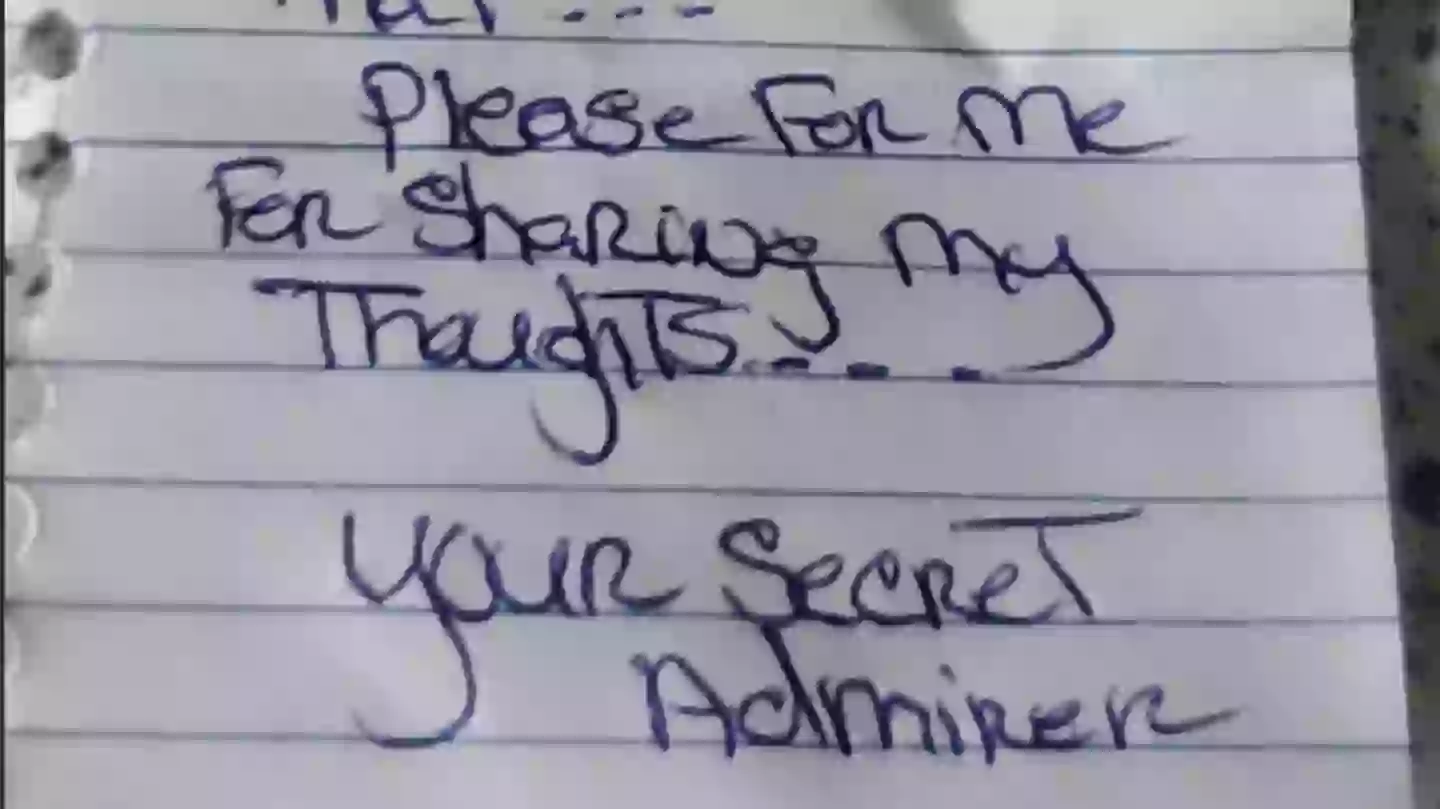 Please For Me
For Sharing My
Thoughts....
Your Secret
Admirer